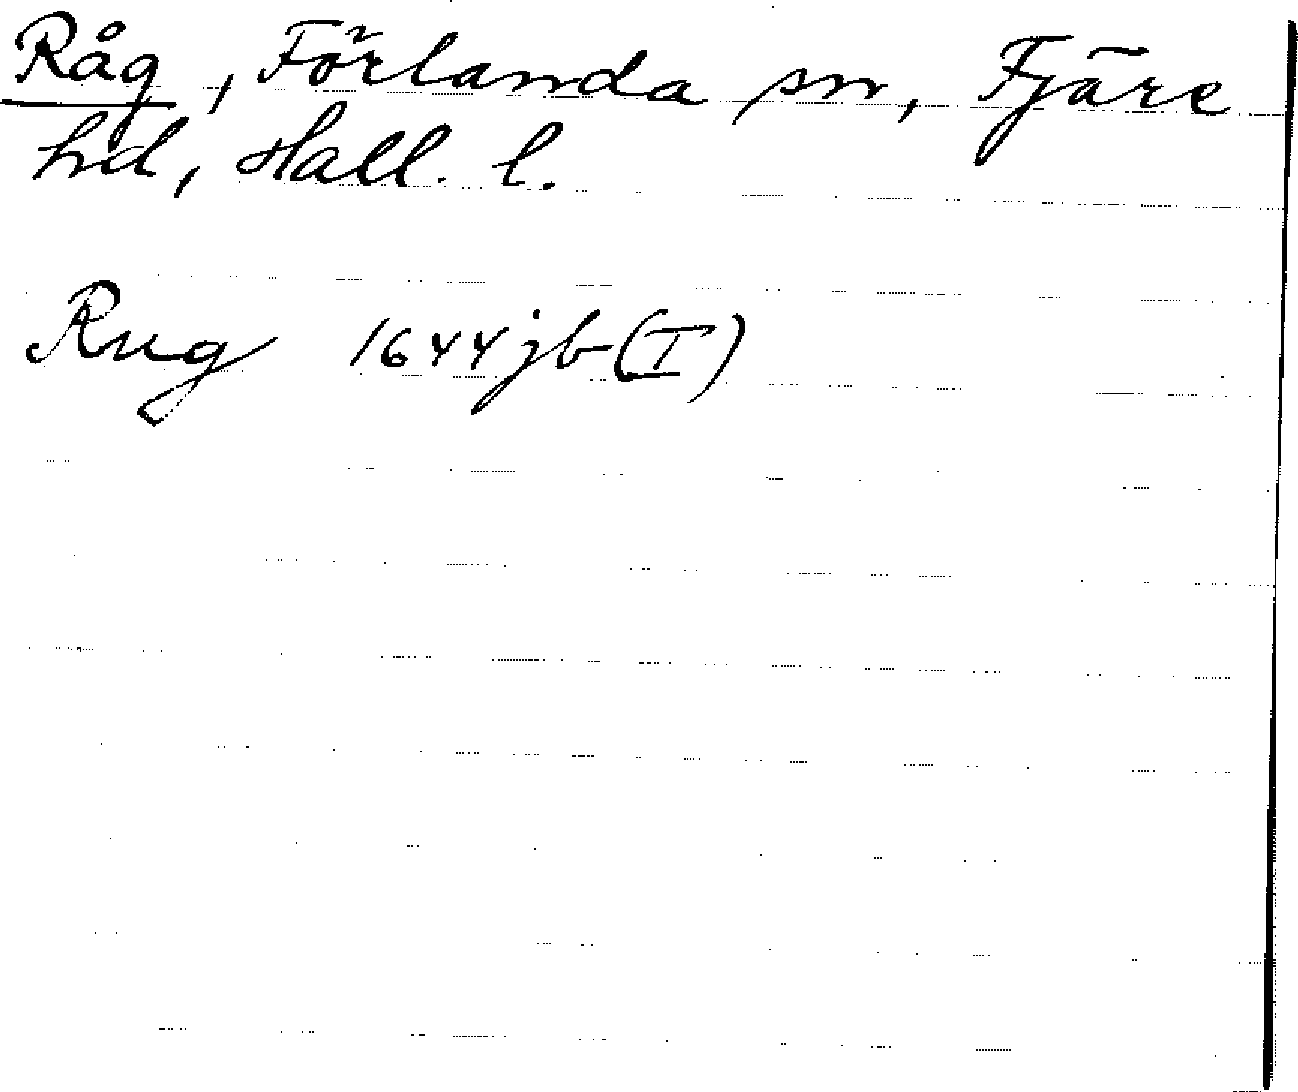 Råg, Förlanda sn, Fjäre
hd, Hall. l.
Rug 1644 jb (I)